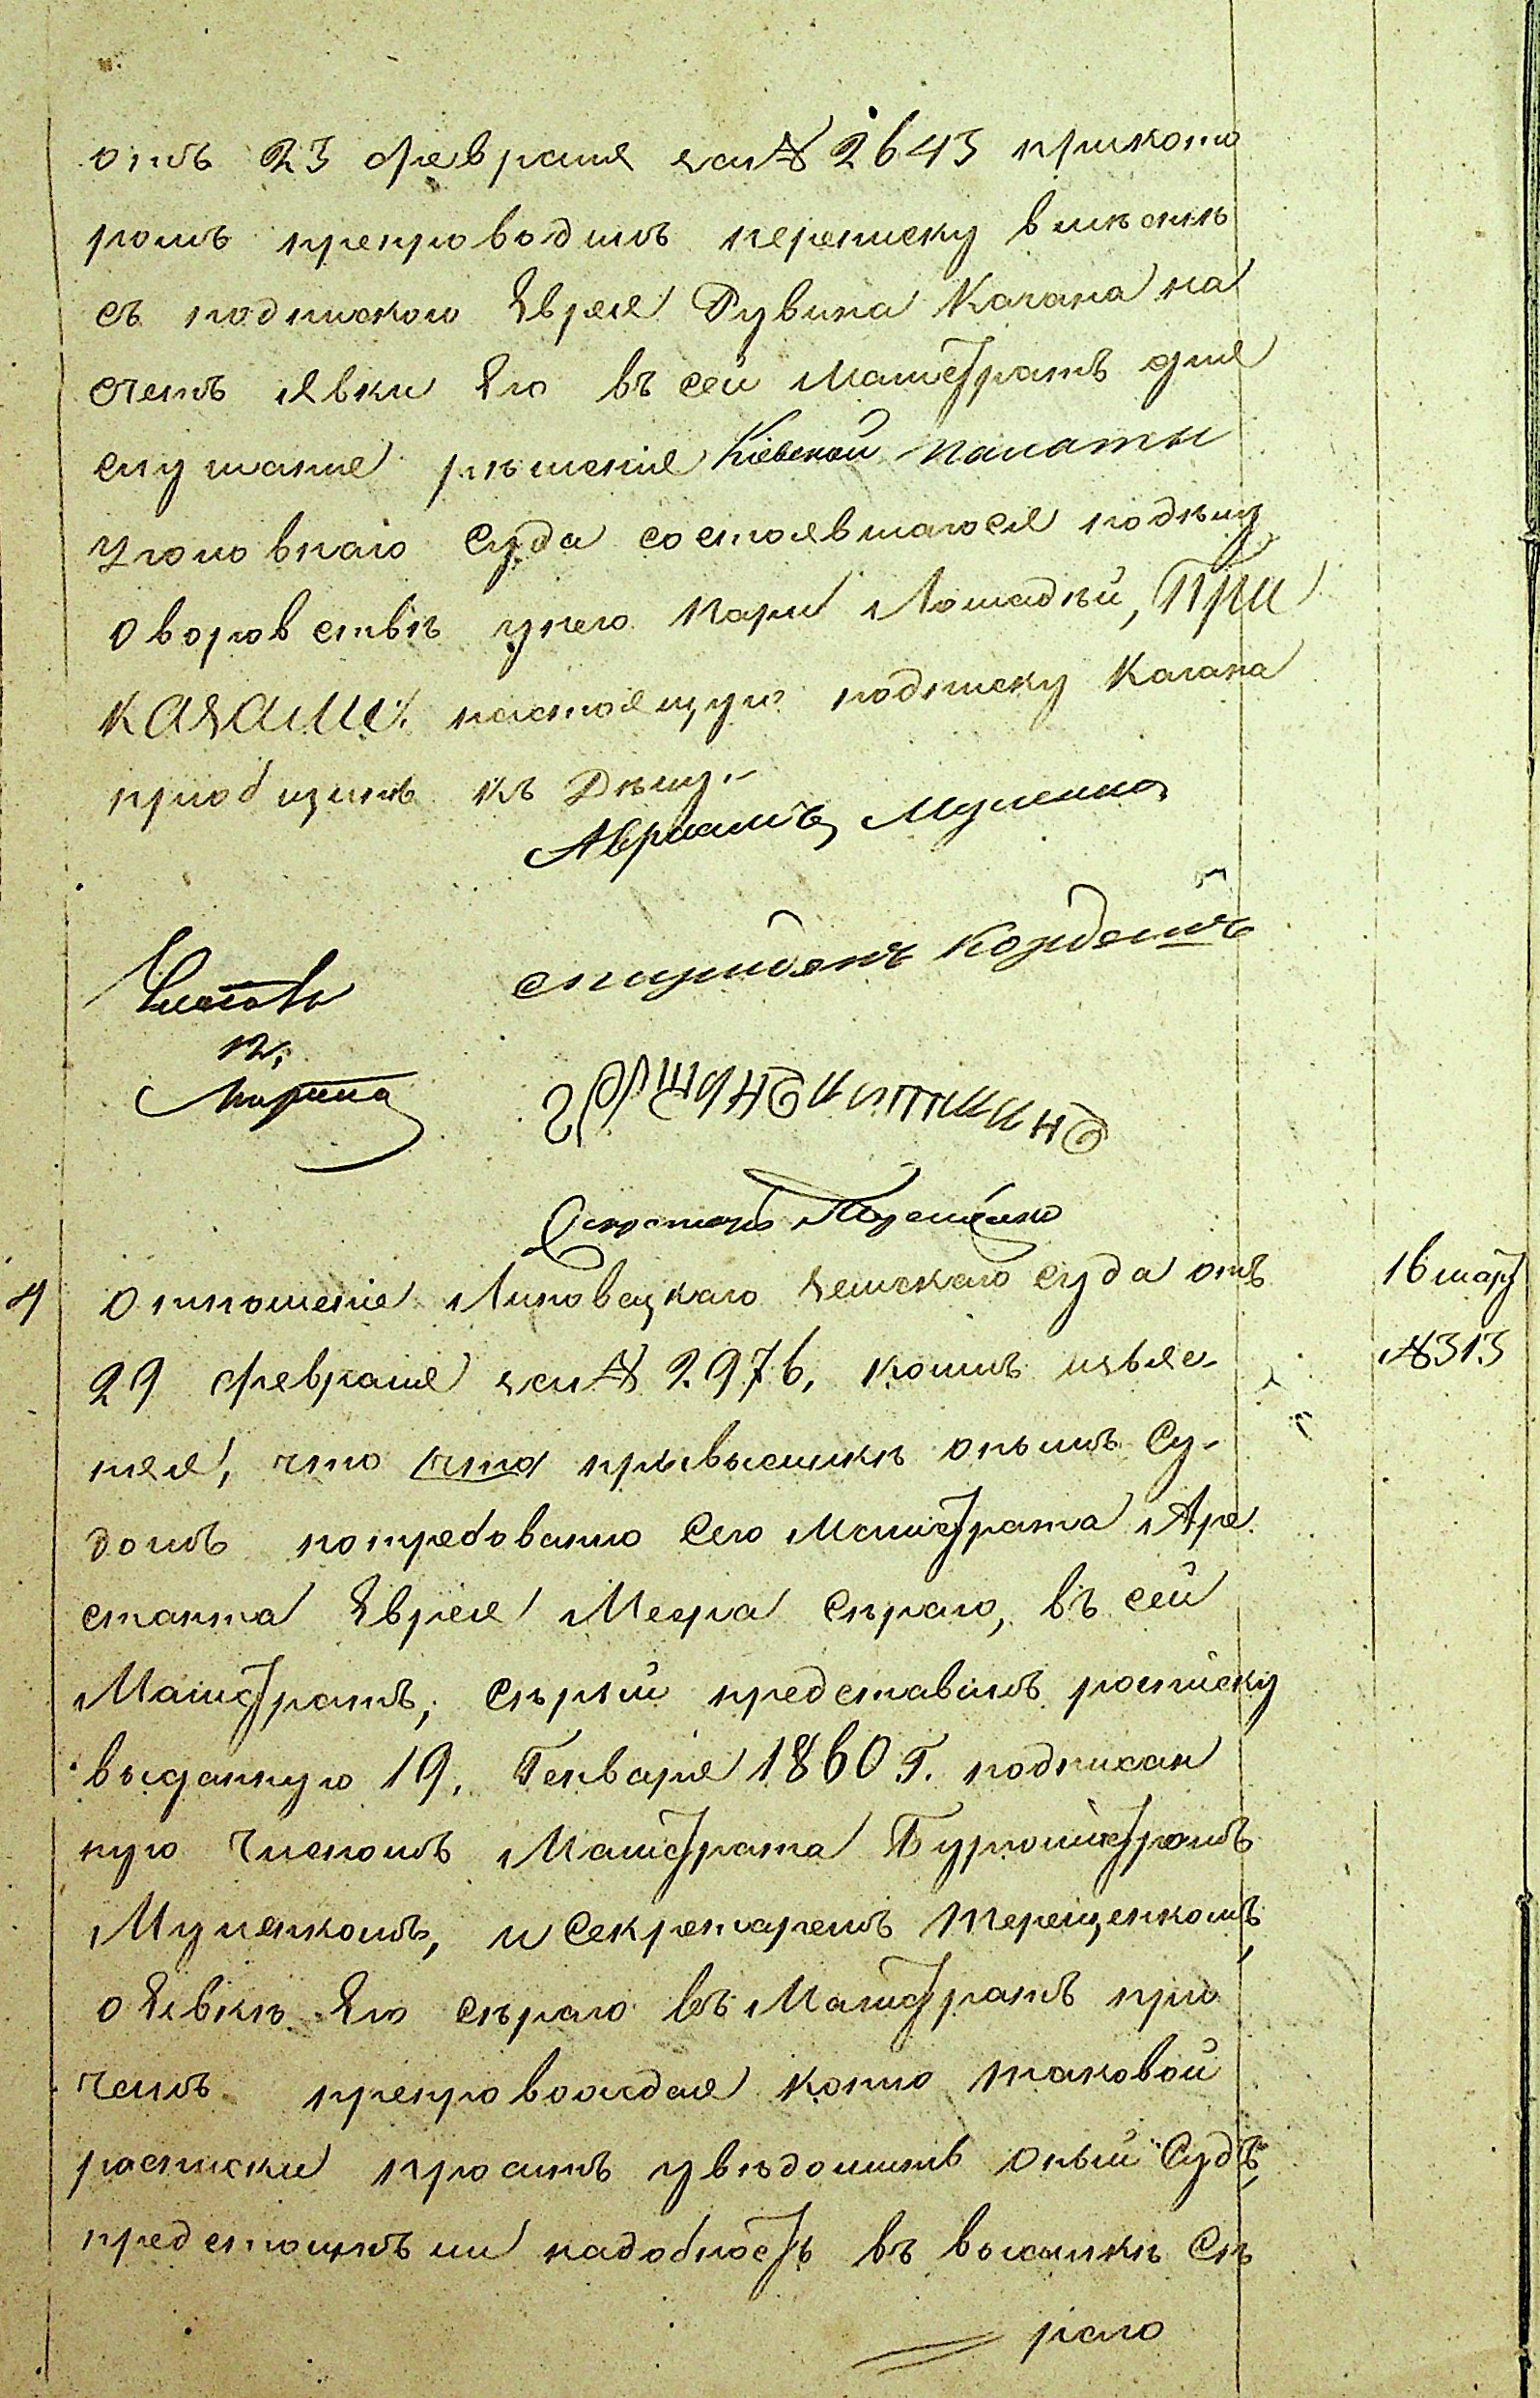 отъ 23 Февраля за № 2643 прикото
ромъ препроводилъ переписку вмѣстѣ
съ подпискою Еврея Рувина Кагана на
счетъ явки Его въ сей Магистратъ для
слушанія рѣшенія Кіевской Палаты
уголовнаго Суда состоявшагося подѣлу
о воровствѣ унего Пары Лошадѣй, При
казали: настоящую подписку Кагана
пріобщить къ Дѣлу.-
Авраамъ
Спиридонъ
4 Отношеніе Липовецкаго Земскаго Суда отъ 16 мар
29 Февраля за № 2976, коимъ изъяс- № 313
няя, что что привысилкѣ онымъ Су-
домъ потребованію Сего Магистрата Аре
станта Еврея Меера Сѣраго, въ сей
Магистратъ, Сѣрый представилъ росписку
выданную 19. Генваря 1860 г. подписан
ную Членомъ Магистрата Бургомистромъ
Муленкомъ, и Секретаремъ Терещенкомъ,
о Явкѣ Его Сѣраго въ Магистратъ при
чемъ препровождая копію таковой
росписки проситъ увѣдомить оный Судъ,
предстоитъ ли надобность въ высылкѣ Сѣ
раго